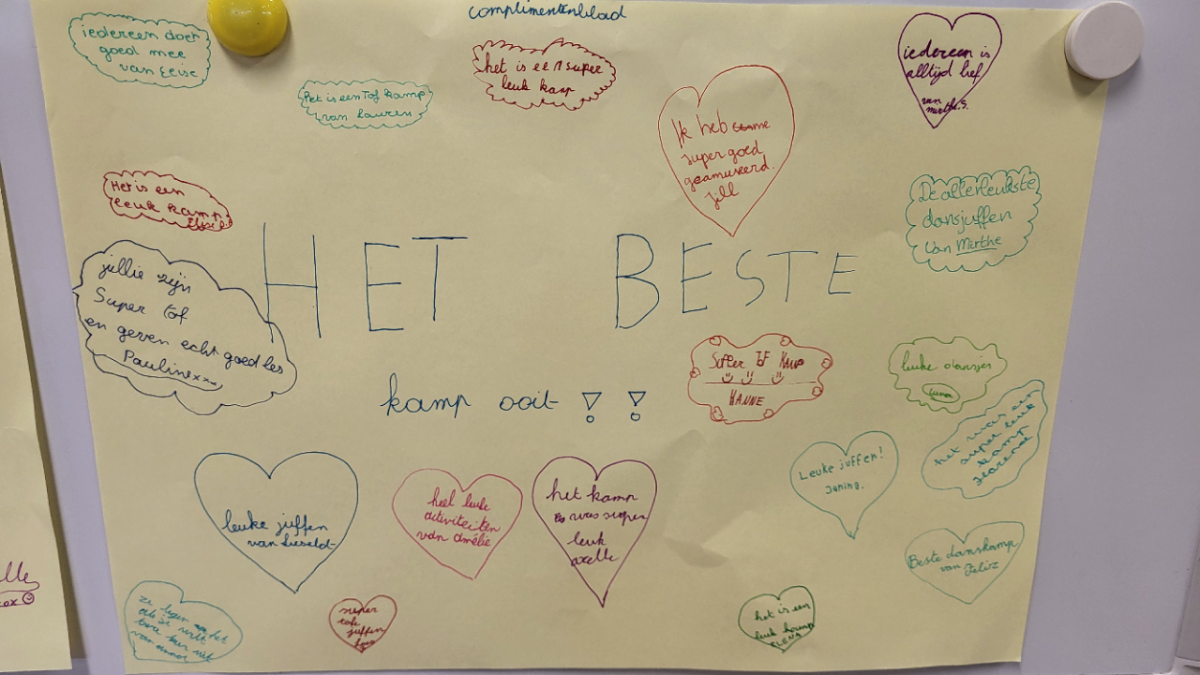 complimentenblad
iedereen doet
goed mee
van
Het is een Tof kamp
van Lauren
het is een super
leuk kamp
Ik heb
super goed
geamuseerd.
Jill
iedereen is
altijd lief
van
mirthe.S.
Het is een
leuk kamp
De allerleukste
dansjuffen
Van Mirthe
HET BESTE
kamp ooit !!
jullie zijn
Super tof
en geven echt goed les
Paulinexxx
SUPER TOF KAMP
HANNE
leuke dansjes
Luna
het was een
super leuk
kamp
Leuke juffen!
Janina.
leuke juffen
van Liselot
heel leuke
activiteiten
van Amélie
het kamp
was super
leuk
axelle
Beste danskamp
van
super
juffen
het is een
leuk kamp
ELENA